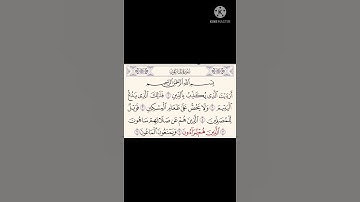 KINEMASTER
سورة الماعون
بسم الله الرحمن الرحيم
أرءيت الذي يكذب بالدين فذلك الذي يدع
اليتيم ولا يحض على طعام المسكين فويل
للمصلين الذين هم عن صلاتهم ساهون
الذين هم يراءون ويمنعون الماعون